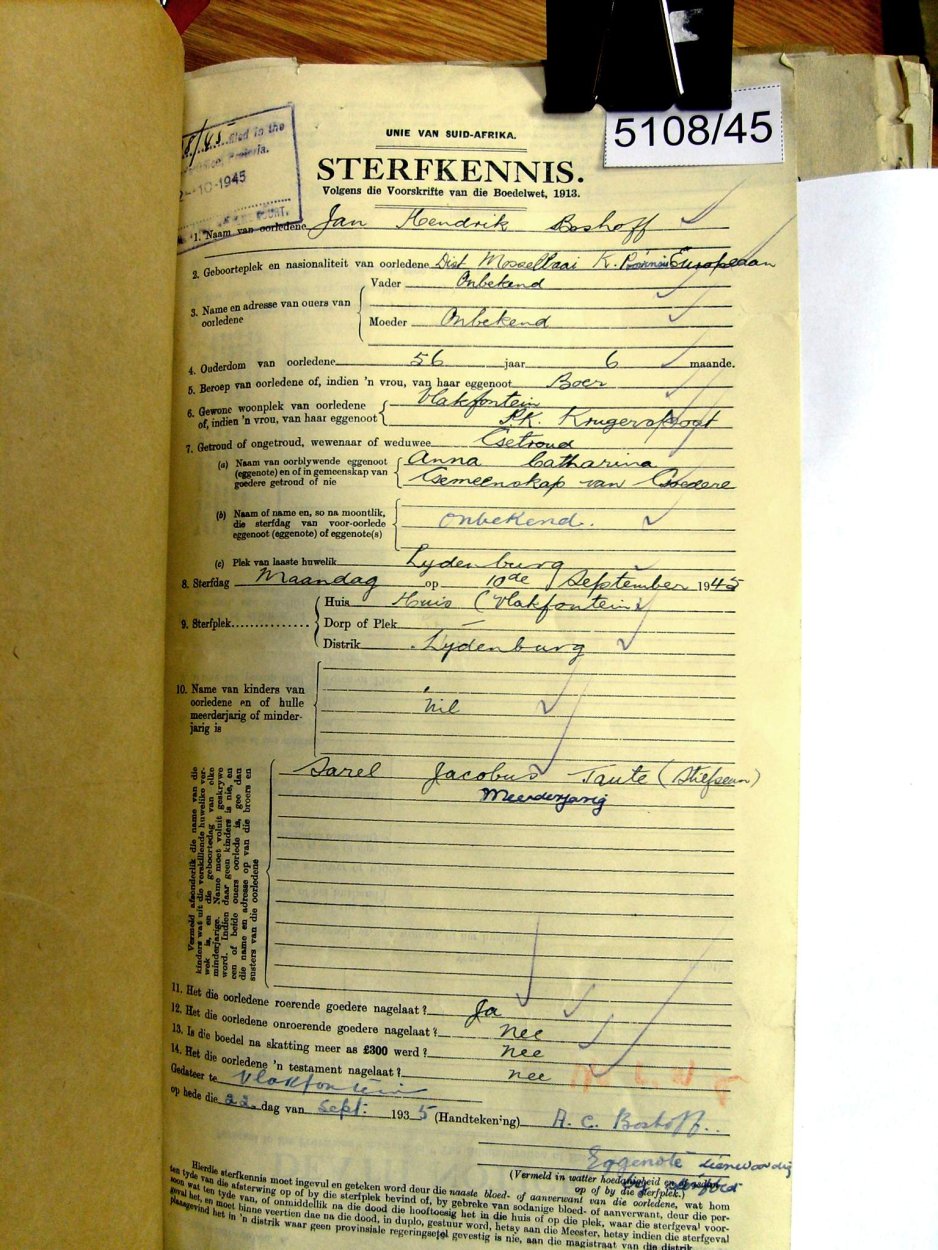 5108/45
UNIE VAN SUID-AFRIKA.
STERFKENNIS.
Volgens die Voorskrifte van die Boedelwet, 1913.
filed in the
-10-1945
1. Naam van oorledene Jan Hendrik Boshoff
2. Geboorteplek en nasionaliteit van oorledene Dist Mosselbaai K. Provinsie Europeaan
3. Name en adresse van ouers van oorledene
Vader Onbekend
Moeder Onbekend
4. Ouderdom van oorledene 56 jaar 6 maande.
5. Beroep van oorledene of, indien 'n vrou, van haar eggenoot Boer
6. Gewone woonplek van oorledene of, indien 'n vrou, van haar eggenoot
Vlakfontein
P.K. Krugerspost
7. Getroud of ongetroud, wewenaar of weduwee Getroud
(a) Naam van oorblywende eggenoot (eggenote) en of in gemeenskap van goedere getroud of nie
Anna Catharina
Gemeenskap van Goedere
(b) Naam of name en, so na moontlik, die sterfdag van voor-oorlede eggenoot (eggenote) of eggenote(s)
Onbekend.
(c) Plek van laaste huwelik Lydenburg
8. Sterfdag Maandag op 10de September 1945
9. Sterfplek
Huis Huis (Vlakfontein)
Dorp of Plek —
Distrik Lydenburg
10. Name van kinders van oorledene en of hulle meerderjarig of minderjarig is
nil
Vermeld afsonderlik die name van die kinders wat uit die verskillende huwelike verwek is, en die geboortedag van elke minderjarige. Name moet voluit geskrywe word. Indien daar geen kinders is nie, en een of beide ouers oorlede is, gee dan die name en adresse op van die broers en susters van die oorledene
Sarel Jacobus Taute (Stiefseun)
Meerderjarig
11. Het die oorledene roerende goedere nagelaat? Ja
12. Het die oorledene onroerende goedere nagelaat? Nee
13. Is die boedel na skatting meer as £300 werd? Nee
14. Het die oorledene 'n testament nagelaat? Nee
Gedateer te Vlakfontein
op hede die 22 dag van Sept: 1935 (Handtekening) A. C. Boshoff
Eggenote teenwoordig
(Vermeld in watter hoedanigheid en
op of by die sterfplek.)
Hierdie sterfkennis moet ingevul en geteken word deur die naaste bloed- of aanverwant van die oorledene, wat hom
ten tyde van die afsterwing op of by die sterfplek bevind of, by gebreke van sodanige bloed- of aanverwant, deur die per-
soon wat ten tyde van, of onmiddellik na die dood die hooftoesig het in die huis of op die plek, waar die sterfgeval voor-
geval het, en moet binne veertien dae na die dood, in duplo, gestuur word, hetsy aan die Meester, hetsy indien die sterfgeval
plaasgevind het in 'n distrik waar geen provinsiale regeringsetel gevestig is nie, aan die magistraat van die distrik.